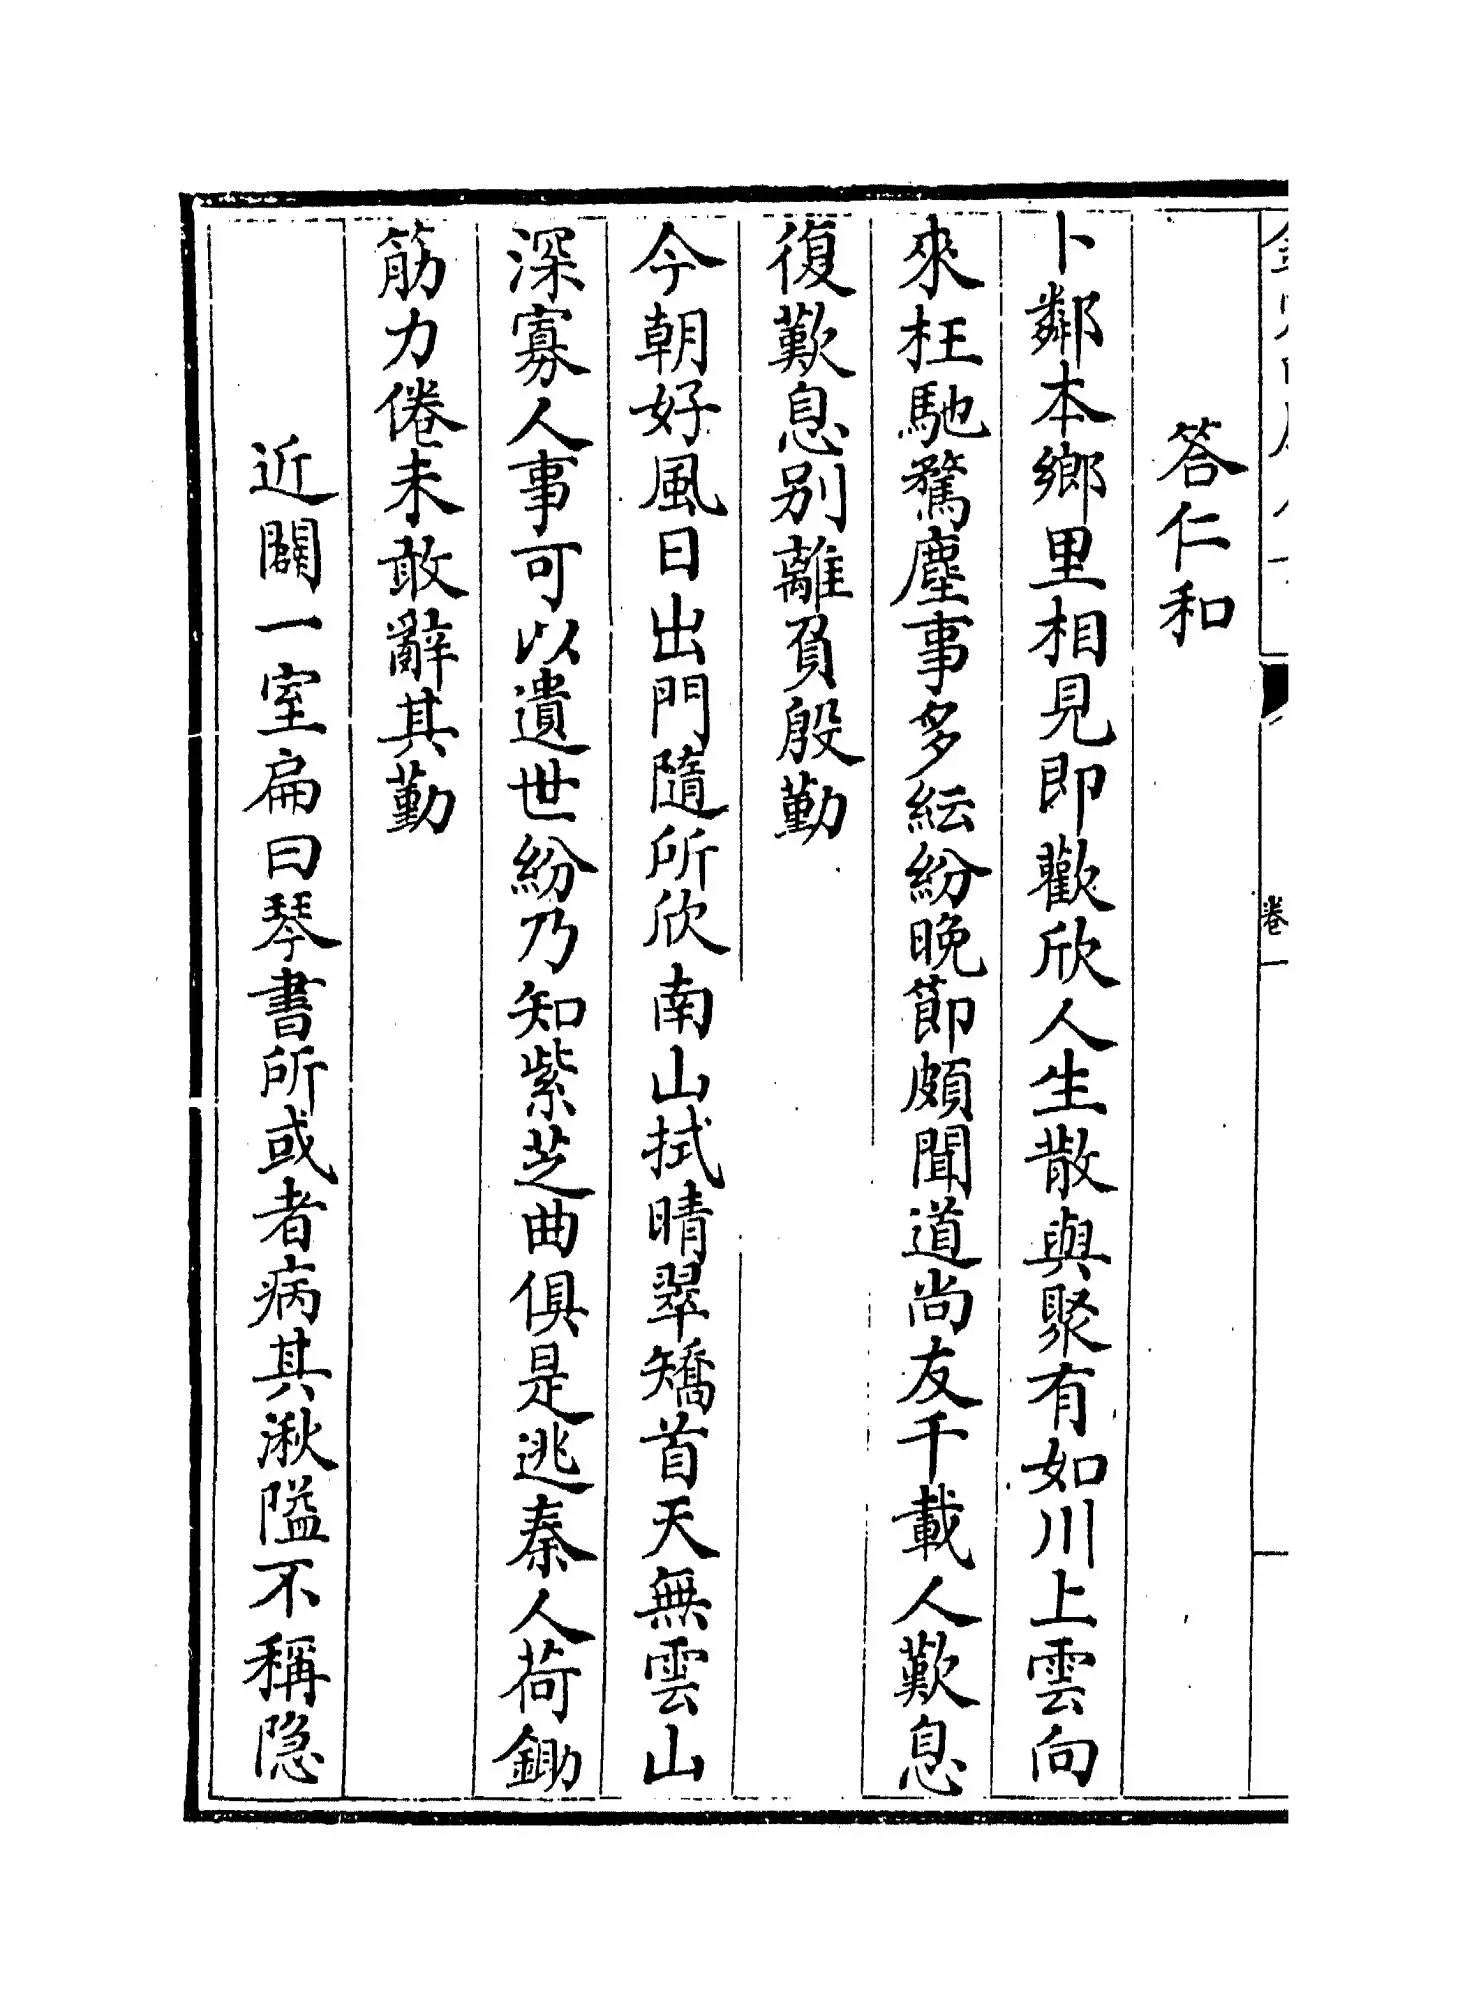 答仁和
卜鄰本鄉里相見即歡欣人生散與聚有如川上雲向
來枉馳騖塵事多紜紛晚節頗聞道尚友千載人歎息
復歎息别離負殷勤
今朝好風日出門隨所欣南山拭晴翠矯首天無雲山
深寡人事可以遺世紛乃知紫芝曲俱是逃秦人荷鋤
筋力倦未敢辭其勤
近闢一室扁曰琴書所或者病其湫隘不稱隐
卷一